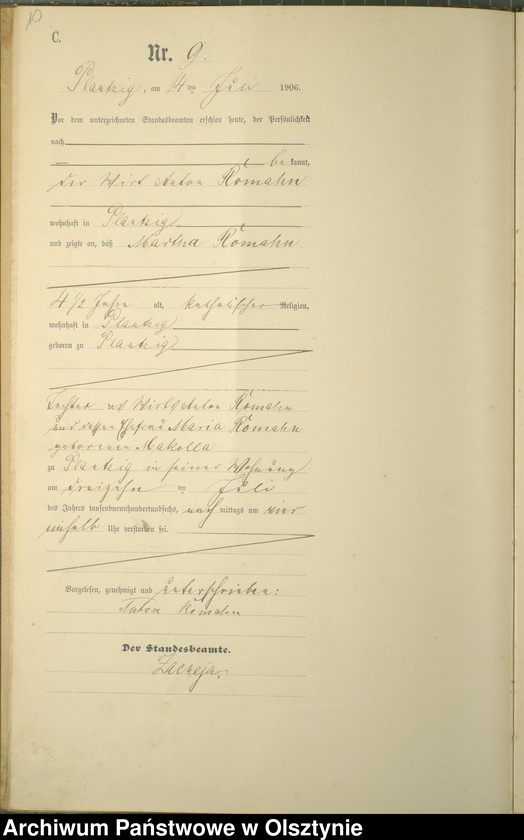 10
C.
Nr. 9.
Plautzig, am 14 ten Juli 1906.
Vor dem unterzeichneten Standesbeamten erschien heute, der Persönlichkeit
nach
bekannt,
der Wirt Anton Romahn
wohnhaft in Plautzig
und zeigte an, daß Martha Romahn
4 1/2 Jahre alt, katholischer Religion,
wohnhaft in Plautzig
geboren zu Plautzig
Tochter des Wirts Anton Romahn
und dessen Ehefrau Maria Romahn
geborenen Makolla
zu Plautzig in seiner Wohnung
am dreizehn ten Juli
des Jahres tausendneunhundertsechs, nach mittags um vier
einhalb Uhr verstorben sei.
Vorgelesen, genehmigt und unterschrieben:
Anton Romahn
Der Standesbeamte.
Archiwum Państwowe w Olsztynie